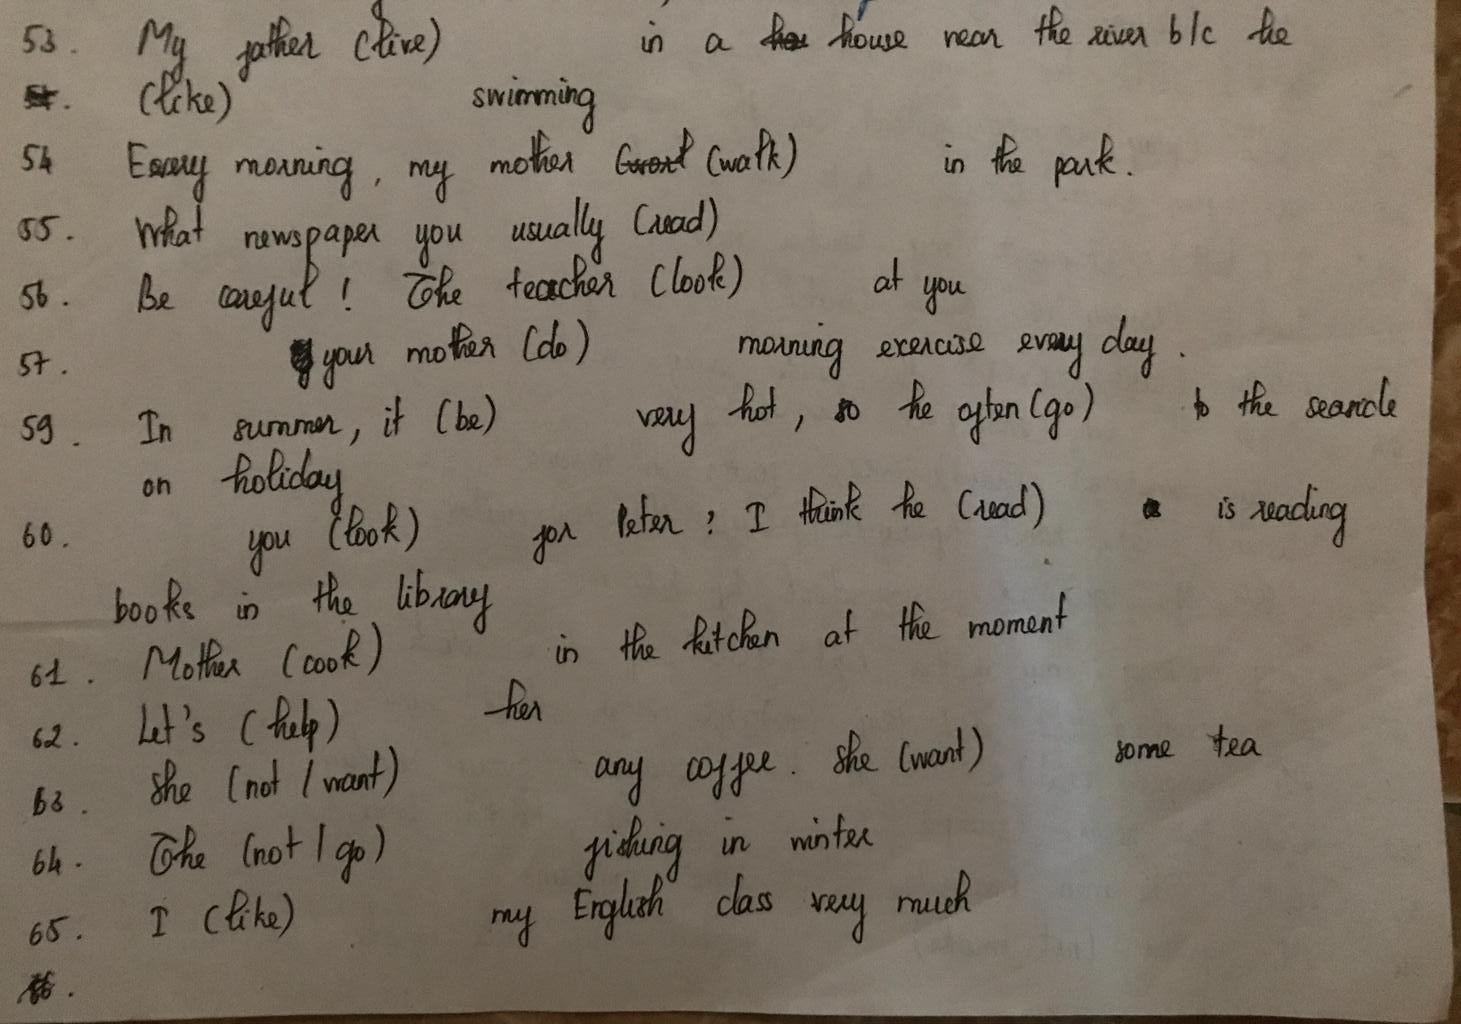 53. My father (live) in a house near the river b/c he
(like) swimming
54 Every morning, my mother (walk) in the park.
55. What newspaper you usually (read)
56. Be careful! The teacher (look) at you
57. your mother (do) morning exercise every day.
59. In summer, it (be) very hot, so he often (go) to the seaside
on holiday
60. you (look) for Peter? I think he (read) is reading
books in the library
61. Mother (cook) in the kitchen at the moment
62. Let's (help) her
63. She (not / want) any coffee. She (want) some tea
64. The (not / go) fishing in winter
65. I (like) my English class very much